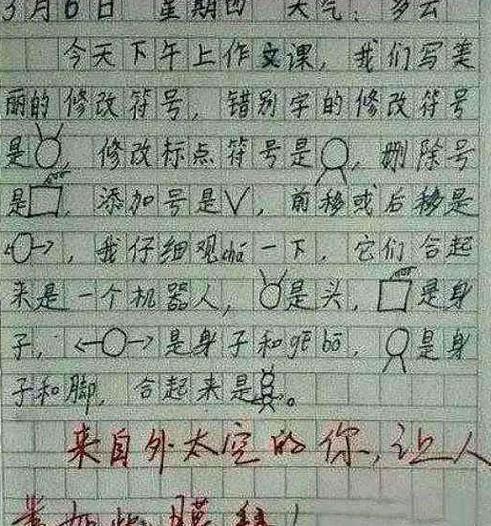 3月6日 星期四 天气：多云
今天下午上作文课，我们写美
丽的修改符号，错别字的修改符号
是，修改标点符号是，删除号
是，添加号是√，前移或后移是
←○→，我仔细观chá一下，它们合起
来是一个机器人，是头，是身
子，←○→是身子和gē bó，是身
子和脚，合起来是。
来自外太空的你，让人